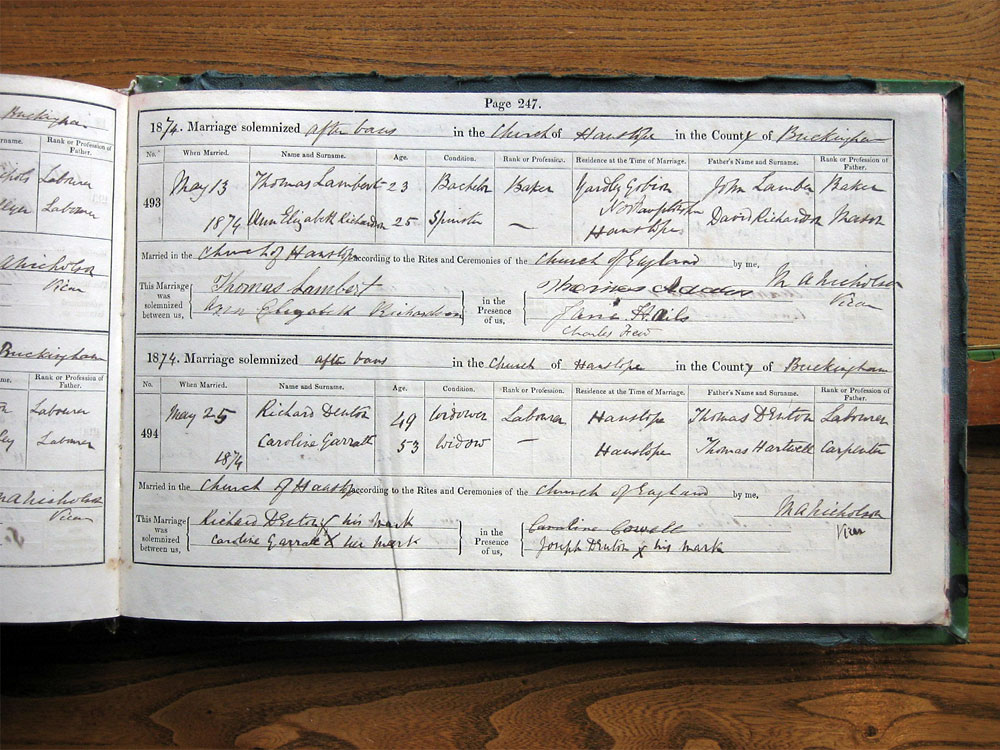 Huckingham
Rank or Profession of
Father.
Labourer
Labourer
Vicar
Buckingham
Rank or Profession of
Father.
Labourer
Labourer
Vicar
Page 247.
1874. Marriage solemnized after bans in the Church of Hanslope in the County of Buckingham
No. When Married. Name and Surname. Age. Condition. Rank or Profession. Residence at the Time of Marriage. Father's Name and Surname. Rank or Profession of Father.
493 May 13 Thomas Lambert 23 Bachelor Baker Yardly Gobion John Lambert Baker
Northamptonshire
1874 Ann Elizabeth Richardson 25 Spinster — Hanslope David Richardson Mason
Married in the Church of Hanslope according to the Rites and Ceremonies of the Church of England by me, M A Nicholson
Vicar
This Marriage was solemnized between us, Thomas Lambert
Ann Elizabeth Richardson
in the Presence of us, Thomas
Jane Hails
Charles Few
1874. Marriage solemnized after bans in the Church of Hanslope in the County of Buckingham
No. When Married. Name and Surname. Age. Condition. Rank or Profession. Residence at the Time of Marriage. Father's Name and Surname. Rank or Profession of Father.
494 May 25 Richard Denton 49 Widower Labourer Hanslope Thomas Denton Labourer
1874 Caroline Garratt 53 Widow — Hanslope Thomas Hartwell Carpenter
Married in the Church of Hanslope according to the Rites and Ceremonies of the Church of England by me, M A Nicholson
Vicar
This Marriage was solemnized between us, Richard Denton X his mark
Caroline Garratt X her mark
in the Presence of us, Caroline Cowell
Joseph Denton X his mark